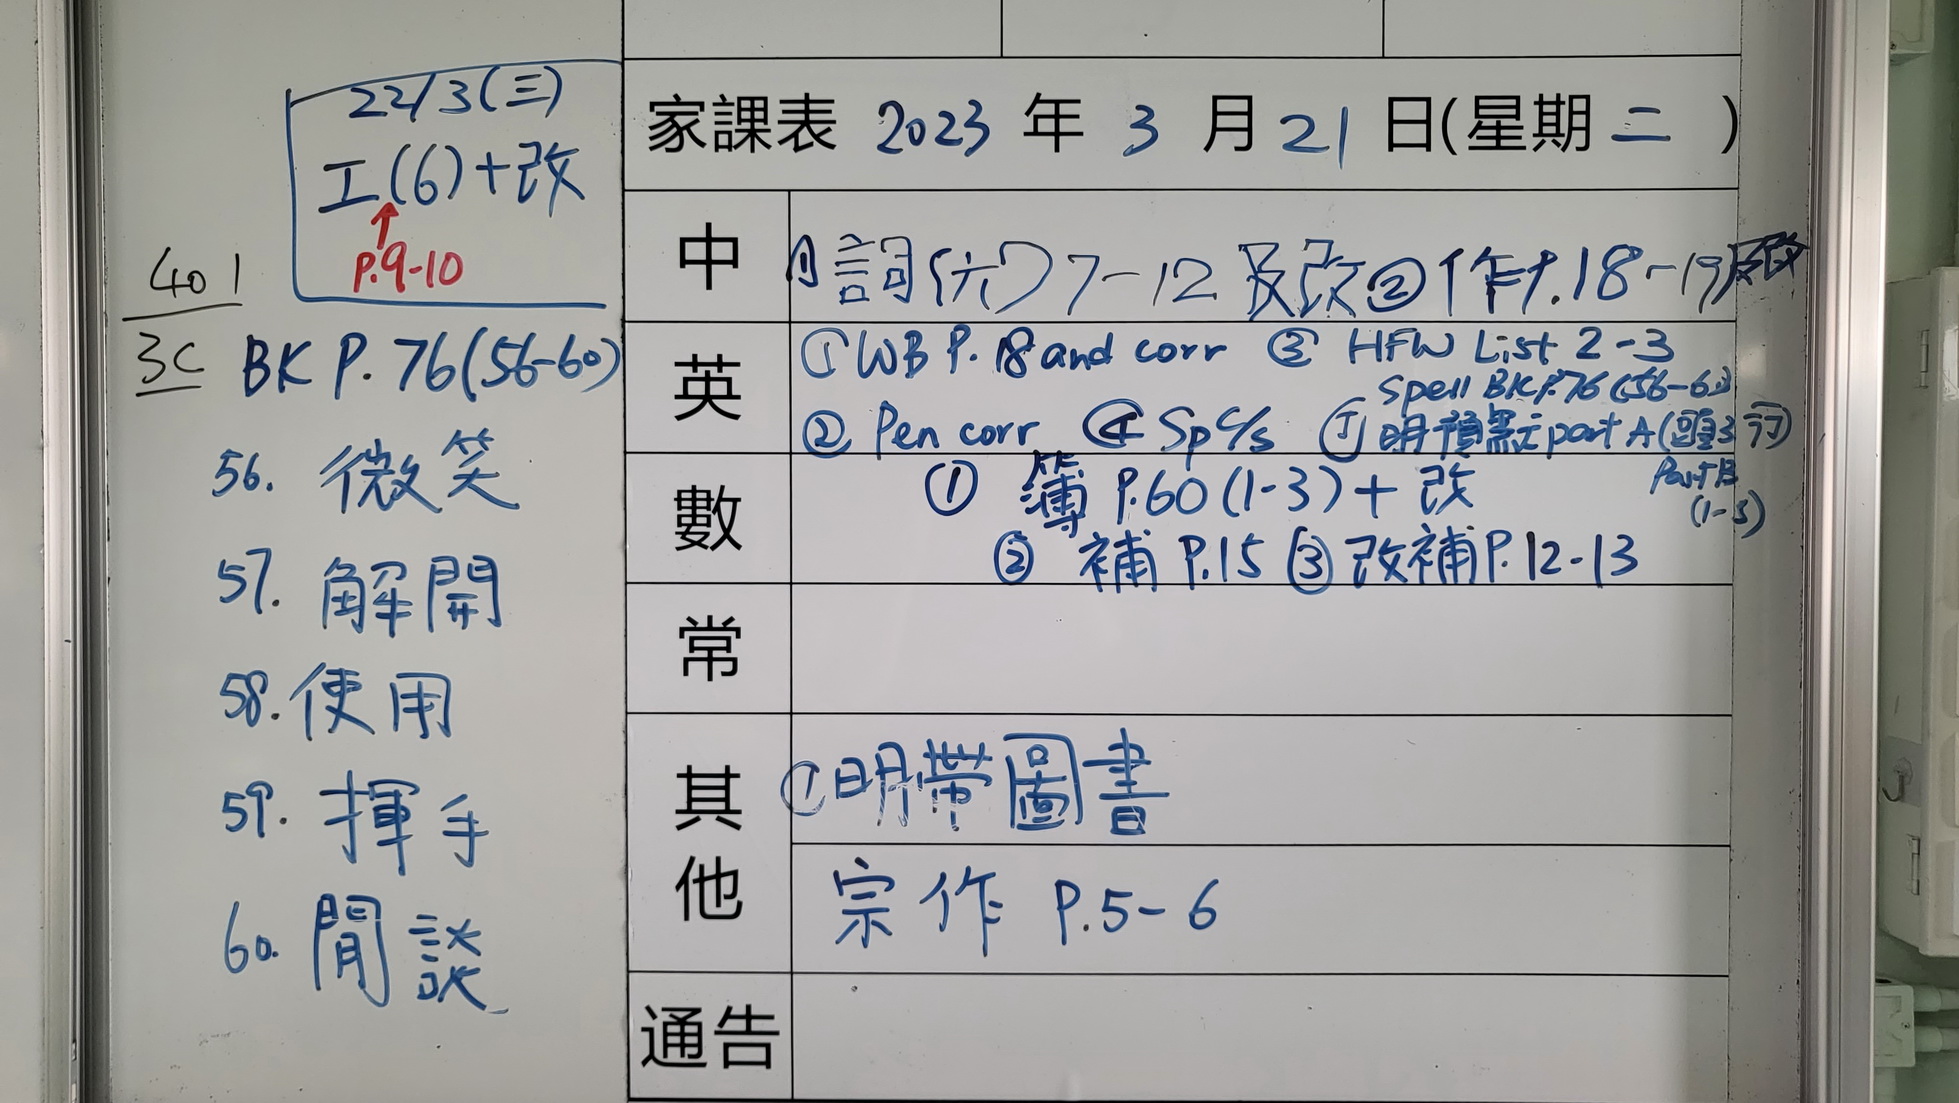 22/3(三)
工(6)+改
P.9-10
401
3C BK P.76(56-60)
56. 微笑
57. 解開
58. 使用
59. 揮手
60. 閒談
家課表 2023 年 3 月 21 日(星期 二 )
中
① 詞(六)7-12 及改 ② 作P.18-19及改
英
① WB P.18 and corr ③ HFW List 2-3
Spell BK P.76 (56-60)
② Pen corr ④ Sp c/s ⑤ 明預默 part A (頭3行)
Part B
(1-3)
數
① 簿 P.60 (1-3) + 改
② 補 P.15 ③ 改補 P.12-13
常
其他
① 明帶圖書
宗作 P.5-6
通告